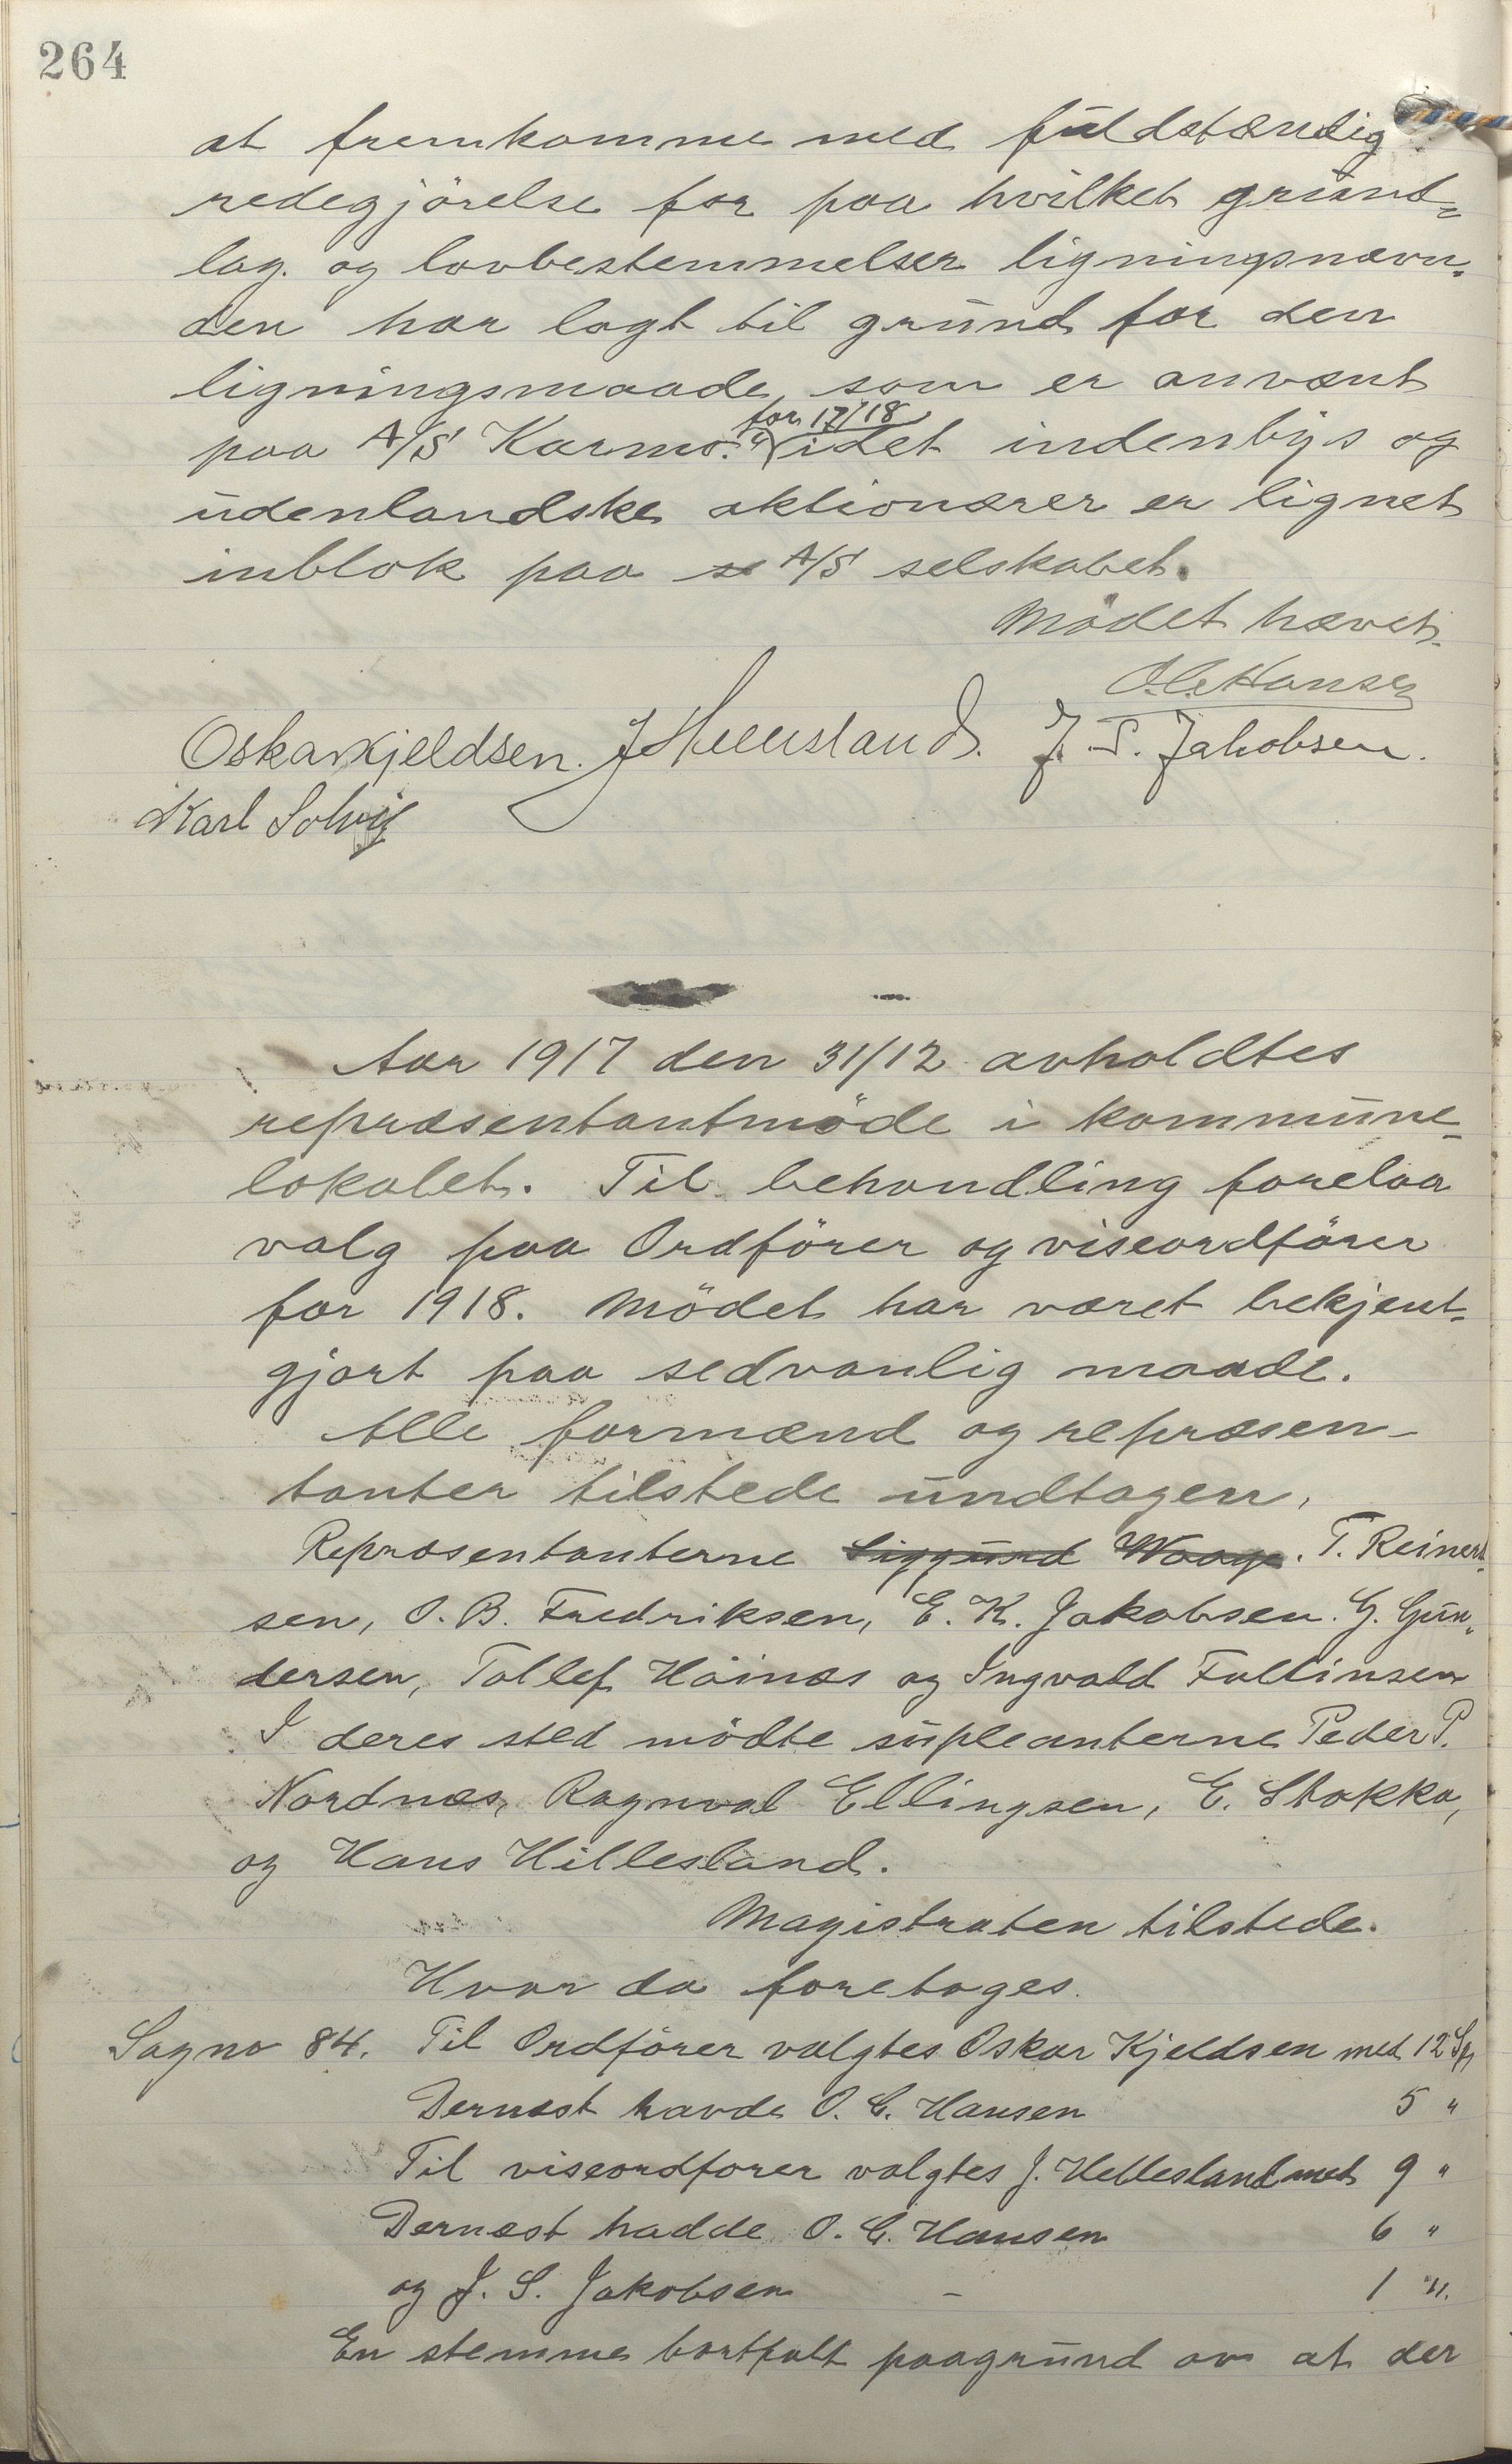 264
at fremkomme med fuldstændig
redegjörelse for paa hvilket grund-
lag. og lovbestemmelser ligningsnævn-
den har lagt til grund for den
ligningsmaade som er anvænt
for 17/18
paa A/S Karmö. idet indenbys og
udenlandske aktionærer er lignet
inblok paa se A/S selskabet.
Mödet hævet.
O. C. Hansen
Oskar Kjeldsen. J Hellesland. J. S. Jakobsen.
Karl Solvig
Aar 1917 den 31/12 avholdtes
repræsentantmöde i kommune-
lokalet. Til behandling forelaa
valg paa Ordförer og viseordförer
for 1918. Mödet har været bekjent-
gjort paa sedvanlig maade.
Alle formænd og repræsen-
tanter tilstede undtagen,
Repræsentanterne Siggurd Waage. T. Reinert-
sen, O. B. Fredriksen, E. K. Jakobsen. G. Gun-
dersen, Tollef Höinæs og Ingvald Fallinsen
I deres sted mödte supleanterne Peder P.
Nordnæs, Ragnval Ellingsen, E. Stokka,
og Hans Hillesland.
Magistraten tilstede.
Hvor da foretoges.
Sagno 84. Til Ordförer valgtes Oskar Kjeldsen med 12 St,
Dernæst havde O. C. Hansen 5 "
Til viseordforer valgtes J. Hellesland med 9 "
Dernæst hadde O. C. Hansen 6 "
og J. S. Jakobsen - 1 ".
En stemme bortfalt paagrund av at der